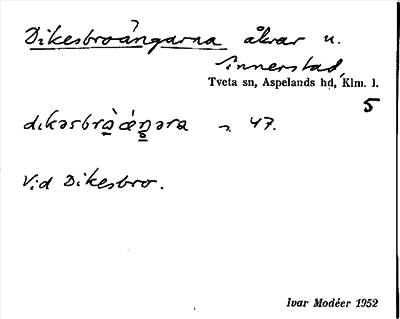 Dikesbroängarna åkrar u.
Innerstad,
Tveta sn, Aspelands hd, Klm. l.
5
s. 47.
Vid Dikesbro.
Ivar Modéer 1952